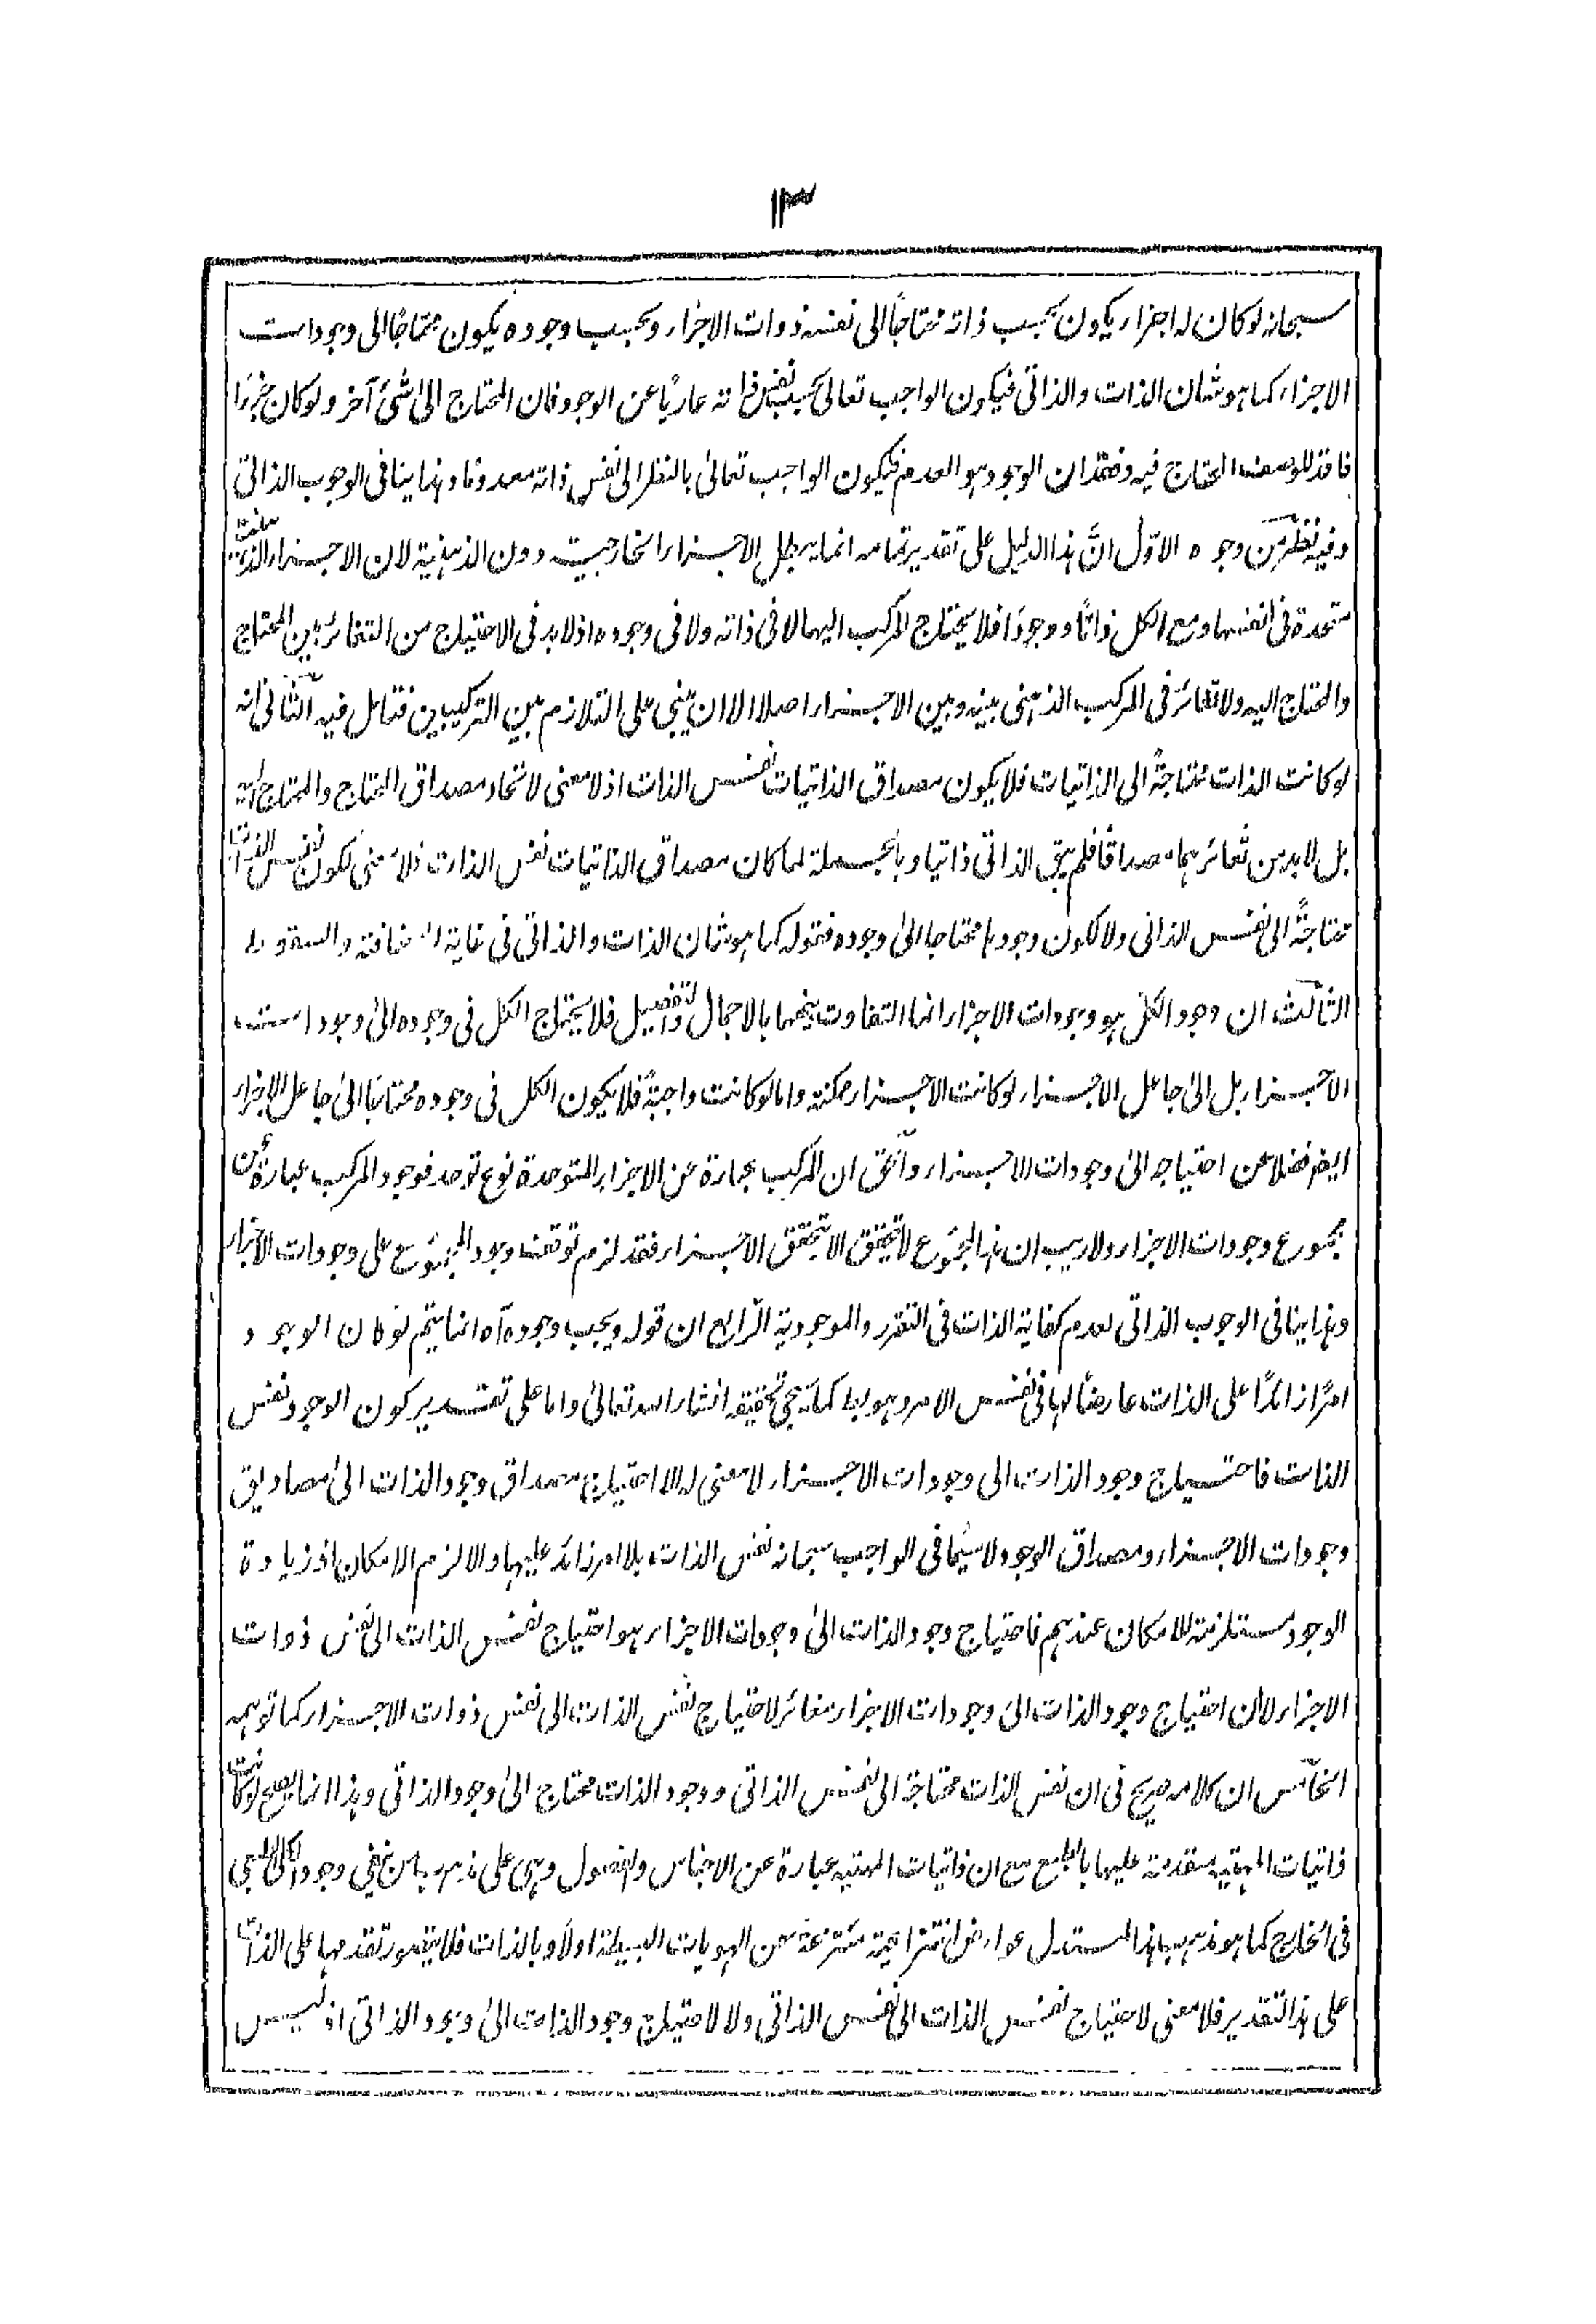 ١٣
سبحانه لو كان له اجزاء يكون بحسب ذاته محتاجًا الى نفس ذوات الاجزاء وبحسب وجوده يكون محتاجًا الى وجودات
الاجزاء كما هو شان الذات والذاتى فيكون الواجب تعالى بحسب نفس ذاته عاريًا عن الوجود فان المحتاج الى شئ آخر ولو كان جزءًا
فاقد للوصف المحتاج فيه وفقدان الوجود هو العدم فيكون الواجب تعالى بالنظر الى نفس ذاته معدومًا وهذا ينافى الوجوب الذاتى
وفيه نظر من وجوه الاوّل انّ هذا الدليل على تقدير تمامه انما يبطل الاجزاء الخارجية دون الذهنية لان الاجزاء الذهنية
متحدة فى انفسها ومع الكل ذاتًا ووجودًا فلا يحتاج المركب اليها لا فى ذاته ولا فى وجوده اذ لا بد فى الاحتياج من التغائر بين المحتاج
والمحتاج اليه ولا تغائر فى المركب الذهنى بينه وبين الاجزاء اصلا الا ان يبنى على التلازم بين التركيبين فتامل فيه الثانى انه
لو كانت الذات محتاجةً الى الذاتيات فلا يكون مصداق الذاتيات نفس الذات اذ لا معنى لاتحاد مصداق المحتاج والمحتاج اليه
بل لا بد من تغائرهما مصداقًا فلم يبق الذاتى ذاتيا وبالجملة لما كان مصداق الذاتيات نفس الذات فلا معنى لكون نفس الذات
محتاجةً الى نفس الذاتى ولا لكون وجودها محتاجا الى وجوده فقوله كما هو شان الذات والذاتى فى غاية السخافة والسقوط
الثالث ان وجود الكل هو وجودات الاجزاء انما التفاوت بينهما بالاجمال والتفصيل فلا يحتاج الكل فى وجوده الى وجودات
الاجزاء بل الى جاعل الاجزاء لو كانت الاجزاء ممكنة واما لو كانت واجبةً فلا يكون الكل فى وجوده محتاجًا الى جاعل الاجزاء
ايضم فضلا عن احتياجه الى وجودات الاجزاء والحق ان المركب عبارة عن الاجزاء المتوحدة نوع توحد فوجود المركب عبارة عن
مجموع وجودات الاجزاء ولا ريب ان هذا المجموع لا يتحقق الا بتحقق الاجزاء فقد لزم توقف وجود المجموع على وجودات الاجزاء
وهذا ينافى الوجوب الذاتى لعدم كفاية الذات فى التقرر والموجودية الرابع ان قوله وبحسب وجوده آه انما يتم لو كان الوجود
امرًا زائدًا على الذات عارضًا لها فى نفس الامر وهو بط كما يجئ تحقيقه انشاء الله تعالى واما على تقدير كون الوجود نفس
الذات فاحتياج وجود الذات الى وجودات الاجزاء لا معنى له الا احتياج مصداق وجود الذات الى مصاديق
وجودات الاجزاء ومصداق الوجود لا سيما فى الواجب سبحانه نفس الذات بلا امر زائد عليها والا لزم الامكان اذ زيادة
الوجود مستلزمة للامكان عندهم فاحتياج وجود الذات الى وجودات الاجزاء هو احتياج نفس الذات الى نفس ذوات
الاجزاء لا ان احتياج وجود الذات الى وجودات الاجزاء مغائر لاحتياج نفس الذات الى نفس ذوات الاجزاء كما توهمه
الخامس ان كلامه صريح فى ان نفس الذات محتاجة الى نفس الذاتى ووجود الذات محتاج الى وجود الذاتى وهذا انما يصح لو كانت
ذاتيات المهية متقدمة عليها بالطبع مع ان ذاتيات المهية عبارة عن الاجناس والفصول وهى على مذهب من نفى وجود الكلى الطبعى
فى الخارج كما هو مذهب هذا المستدل عوارض انتزاعية منتزعة من الهويات البسيطة اولًا وبالذات فلا يتصور تقدمها على الذات
على هذا التقدير فلا معنى لاحتياج نفس الذات الى نفس الذاتى ولا لاحتياج وجود الذات الى وجود الذاتى اذ ليس